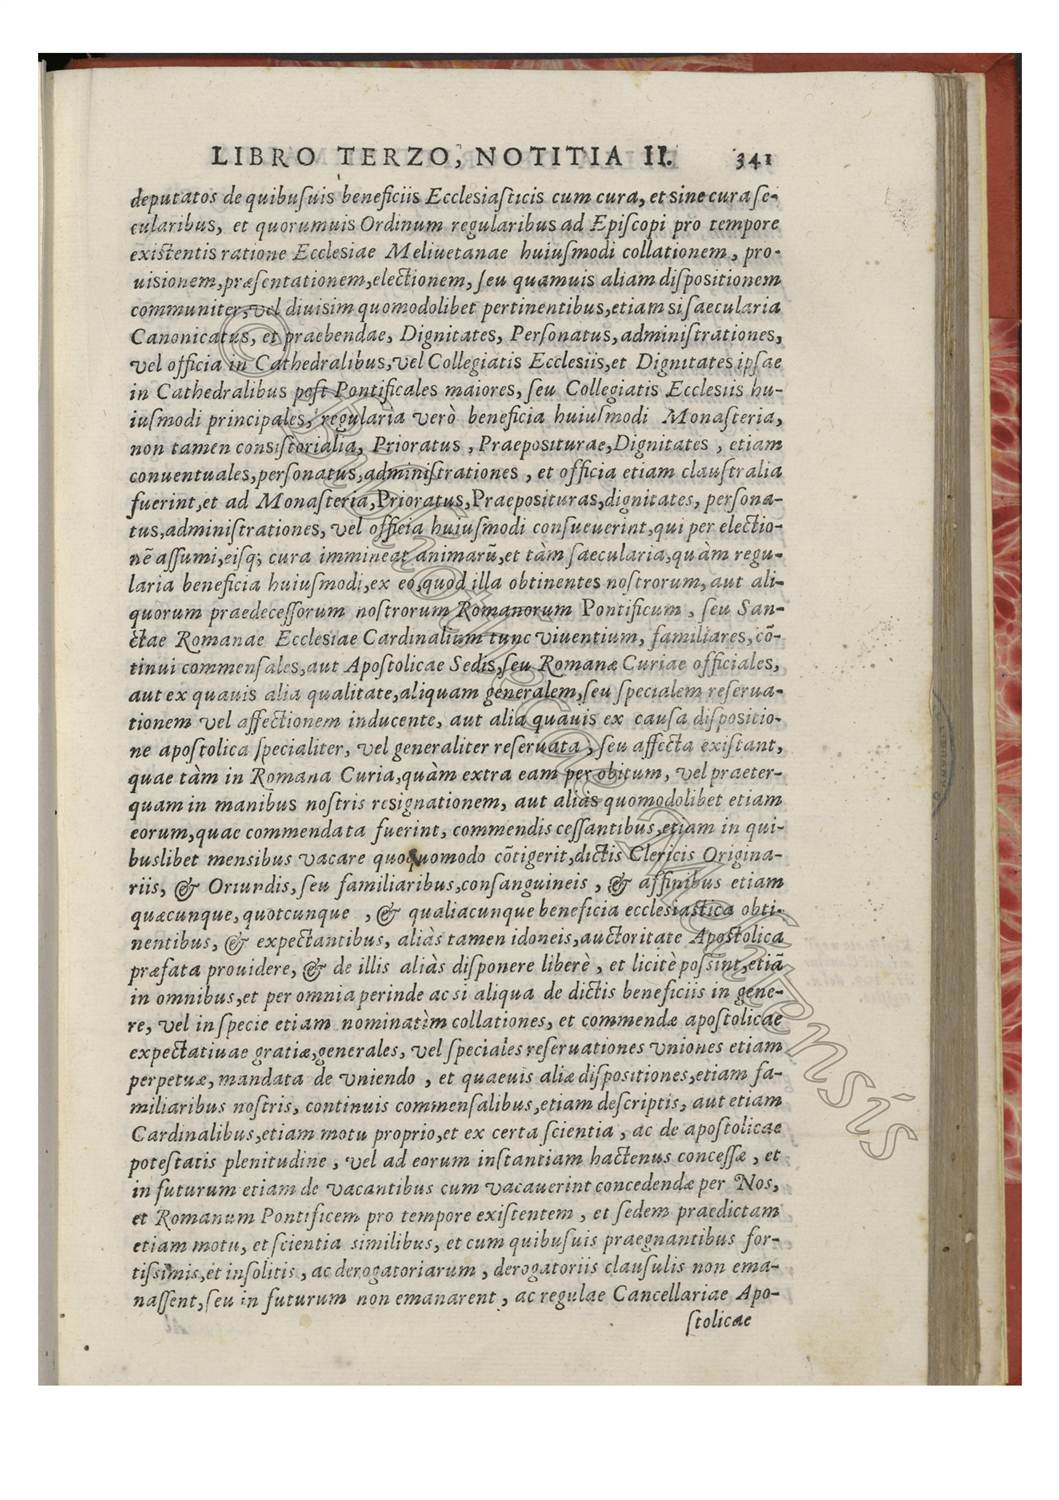 LIBRO TERZO, NOTITIA II. 341
deputatos de quibuſuis beneficiis Eccleſiaſticis cum cura, et sine cura ſe-
cularibus, et quorumuis Ordinum regularibus ad Epiſcopi pro tempore
existentis ratione Eccleſiae Meliuetanae huiuſmodi collationem, pro-
uisionem, præſentationem, electionem, ſeu quamuis aliam diſpositionem
communiter, vel diuisim quomodolibet pertinentibus, etiam si ſaecularia
Canonicatus, et praebendae, Dignitates, Perſonatus, adminiſtrationes,
vel officia in Cathedralibus, vel Collegiatis Eccleſiis, et Dignitates ipſae
in Cathedralibus poſt Pontificales maiores, ſeu Collegiatis Eccleſiis hu-
iuſmodi principales, regularia verò beneficia huiuſmodi Monaſteria,
non tamen consiſtorialia, Prioratus, Praepositurae, Dignitates, etiam
conuentuales, perſonatus, adminiſtrationes, et officia etiam clauſtralia
fuerint, et ad Monaſteria, Prioratus, Praeposituras, dignitates, perſona-
tus, adminiſtrationes, vel officia huiuſmodi conſueuerint, qui per electio-
nē aſſumi, eiſq; cura immineat animarū, et tàm ſaecularia, quàm regu-
laria beneficia huiuſmodi, ex eo, quod illa obtinentes noſtrorum, aut ali-
quorum praedeceſſorum noſtrorum Romanorum Pontificum, ſeu San-
ctae Romanae Eccleſiae Cardinalium tunc viuentium, familiares, cō-
tinui commenſales, aut Apoſtolicae Sedis, ſeu Romanæ Curiae officiales,
aut ex quauis alia qualitate, aliquam generalem, ſeu ſpecialem reſerua-
tionem vel affectionem inducente, aut alia quauis ex cauſa diſpositio-
ne apoſtolica ſpecialiter, vel generaliter reſeruata, ſeu affecta exiſtant,
quae tàm in Romana Curia, quàm extra eam per obitum, vel praeter-
quam in manibus noſtris resignationem, aut aliàs quomodolibet etiam
eorum, quae commendata fuerint, commendis ceſſantibus, etiam in qui-
buslibet mensibus vacare quoquomodo cōtigerit, dictis Clericis Origina-
riis, & Oriundis, ſeu familiaribus, conſanguineis, & affinibus etiam
quæcunque, quotcunque, & qualiacunque beneficia ecclesiastica obti-
nentibus, & expectantibus, aliàs tamen idoneis, auctoritate Apoſtolica
præfata prouidere, & de illis aliàs diſponere liberè, et licitè poſsint, etiā
in omnibus, et per omnia perinde ac si aliqua de dictis beneficiis in gene-
re, vel in ſpecie etiam nominatìm collationes, et commendæ apoſtolicae
expectatiuae gratiæ, generales, vel ſpeciales reſeruationes vniones etiam
perpetuæ, mandata de vniendo, et quaeuis aliæ diſpositiones, etiam fa-
miliaribus noſtris, continuis commenſalibus, etiam deſcriptis, aut etiam
Cardinalibus, etiam motu proprio, et ex certa ſcientia, ac de apoſtolicae
poteſtatis plenitudine, vel ad eorum inſtantiam hactenus conceſſæ, et
in futurum etiam de vacantibus cum vacauerint concedendæ per Nos,
et Romanum Pontificem pro tempore exiſtentem, et ſedem praedictam
etiam motu, et ſcientia similibus, et cum quibuſuis praegnantibus for-
tiſsimis, et inſolitis, ac derogatoriarum, derogatoriis clauſulis non ema-
naſſent, ſeu in futurum non emanarent, ac regulae Cancellariae Apo-
ſtolicae